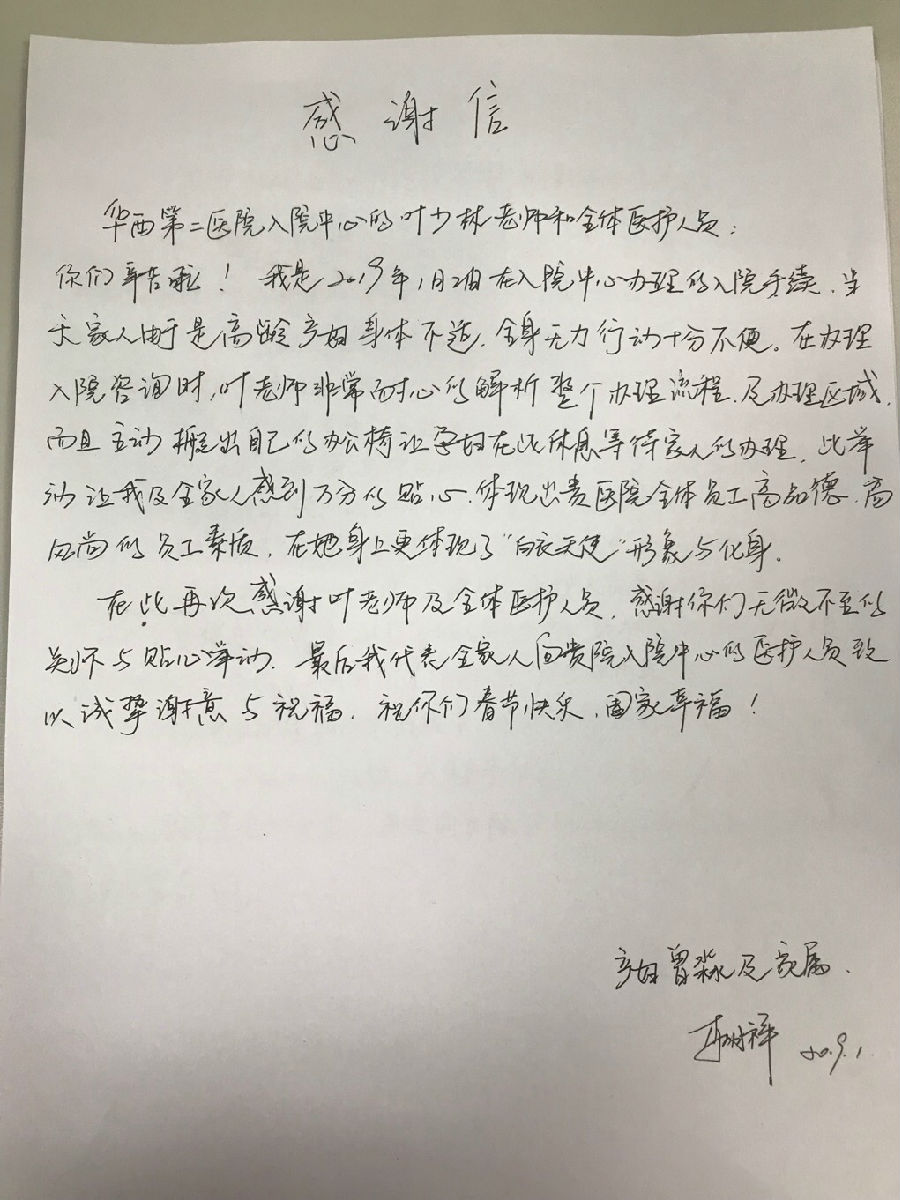 感谢信
华西第二医院入院中心的叶少林老师和全体医护人员:
你们辛苦啦! 我是2019年1月2日在入院中心办理的入院手续,当
天家人由于是高龄产妇身体不适,全身无力行动十分不便。在办理
入院咨询时,叶老师非常耐心的解析整个办理流程,及办理区域,
而且主动搬出自己的办公椅让孕妇在此休息等待家人的办理,此举
动让我及全家人感到万分的贴心,体现出贵医院全体员工高品德,高
风尚的员工素质,在她身上更体现了“白衣天使”形象与化身。
在此再次感谢叶老师及全体医护人员,感谢你们无微不至的
关怀与贴心举动,最后我代表全家人向贵院入院中心的医护人员致
以诚挚谢意与祝福,祝你们春节快乐,阖家幸福!
产妇曾淼及家属.
祥